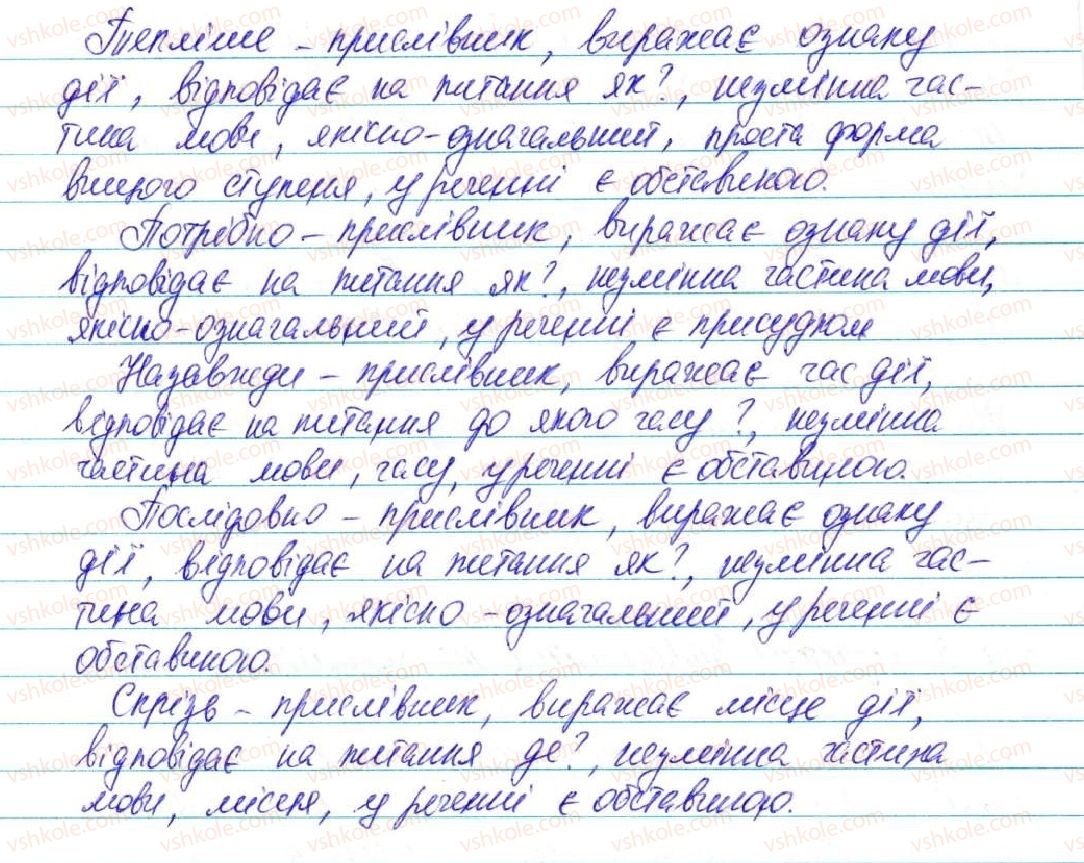 Тепліше – прислівник, виражає ознаку
дії, відповідає на питання як?, незмінна час-
тина мови, якісно-означальний, проста форма
вищого ступеня, у реченні є обставиною.
Потрібно – прислівник, виражає ознаку дії,
відповідає на питання як?, незмінна частина мови,
якісно-означальний, у реченні є присудком
Назавжди – прислівник, виражає час дії,
відповідає на питання до якого часу?, незмінна
частина мови, часу, у реченні є обставиною.
Послідовно – прислівник, виражає ознаку
дії, відповідає на питання як?, незмінна час-
тина мови, якісно-означальний, у реченні є
обставиною.
Скрізь – прислівник, виражає місце дії,
відповідає на питання де?, незмінна частина
мови, місця, у реченні є обставиною.
vshkole.com